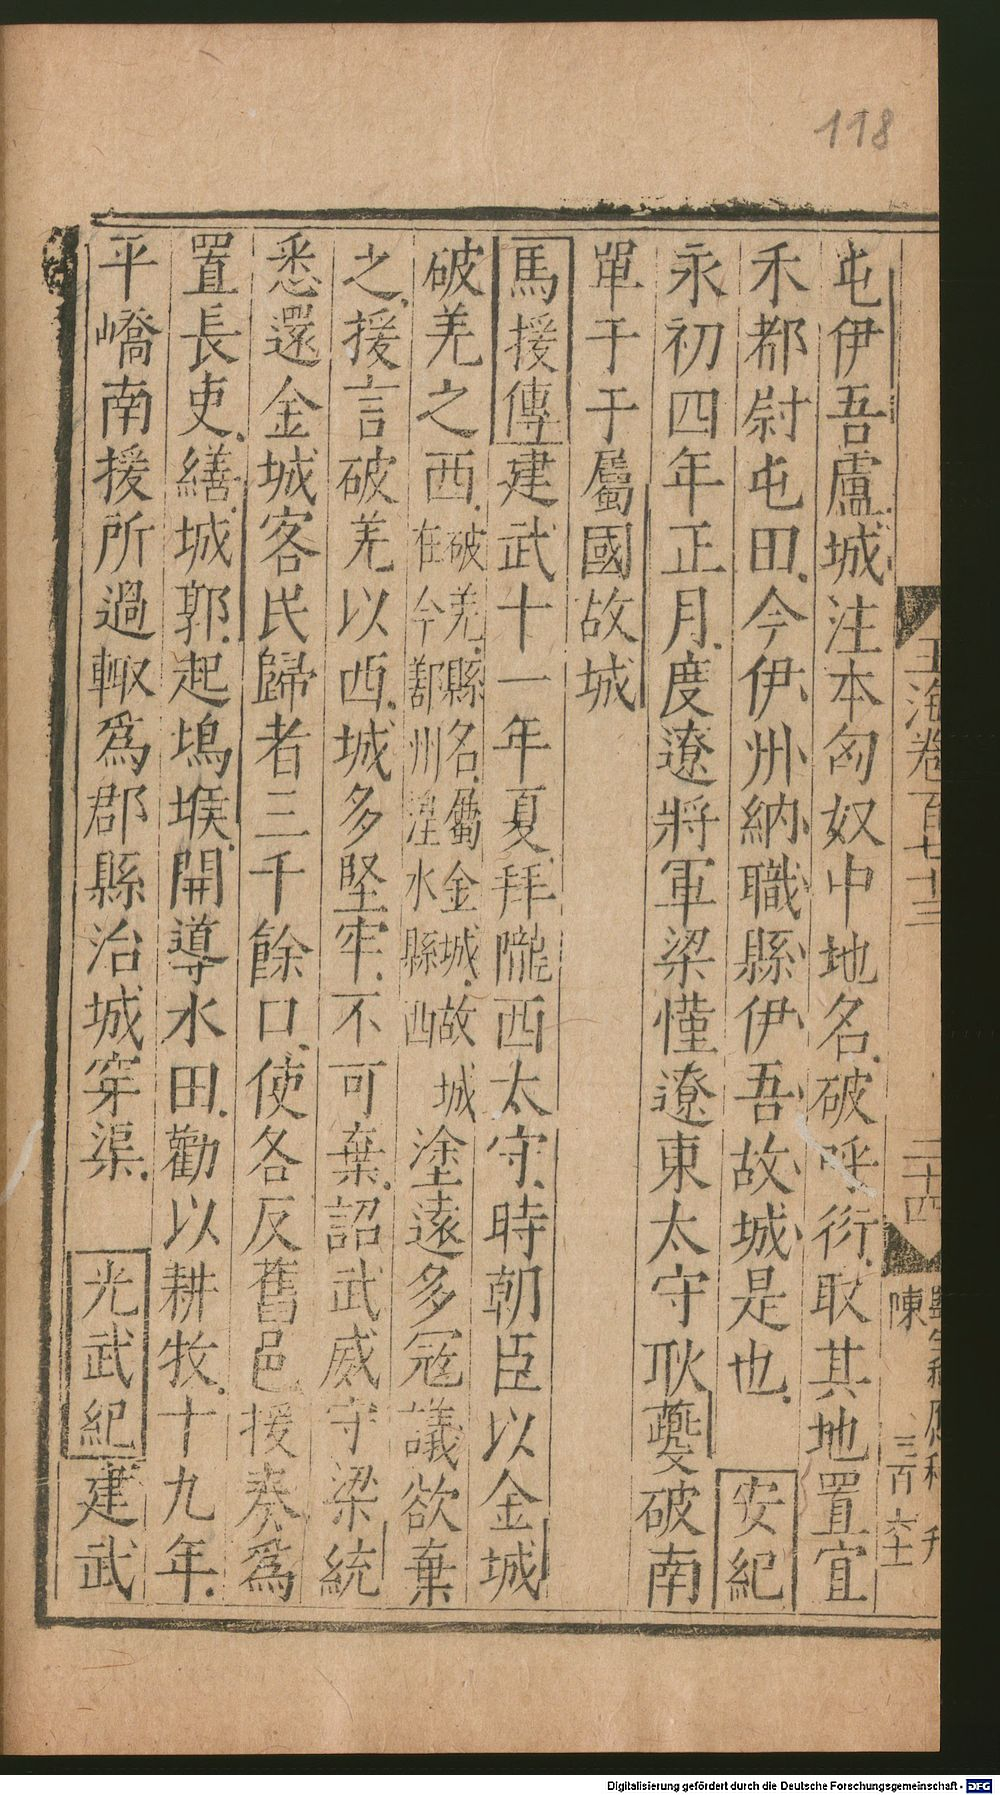 118
屯伊吾盧城注本匈奴中地名破呼衍取其地置宜
禾都尉屯田今伊州納職縣伊吾故城是也 安紀
永初四年正月度遼將軍梁慬遼東太守耿夔破南
單于于屬國故城
馬援傳建武十一年夏拜隴西太守時朝臣以金城
破羌之西破羌縣名屬金城故城在今鄯州湟水縣西塗遠多寇議欲棄
之援言破羌以西城多堅牢不可棄詔武威守梁統
悉還金城客民歸者三千餘口使各反舊邑援奏為
置長吏繕城郭起塢堠開導水田勸以耕牧十九年
平嶠南援所過輙為郡縣治城穿渠 光武紀建武
玉海卷百七十三
二十四
陳
三百六十
Digitalisierung gefördert durch die Deutsche Forschungsgemeinschaft - DFG